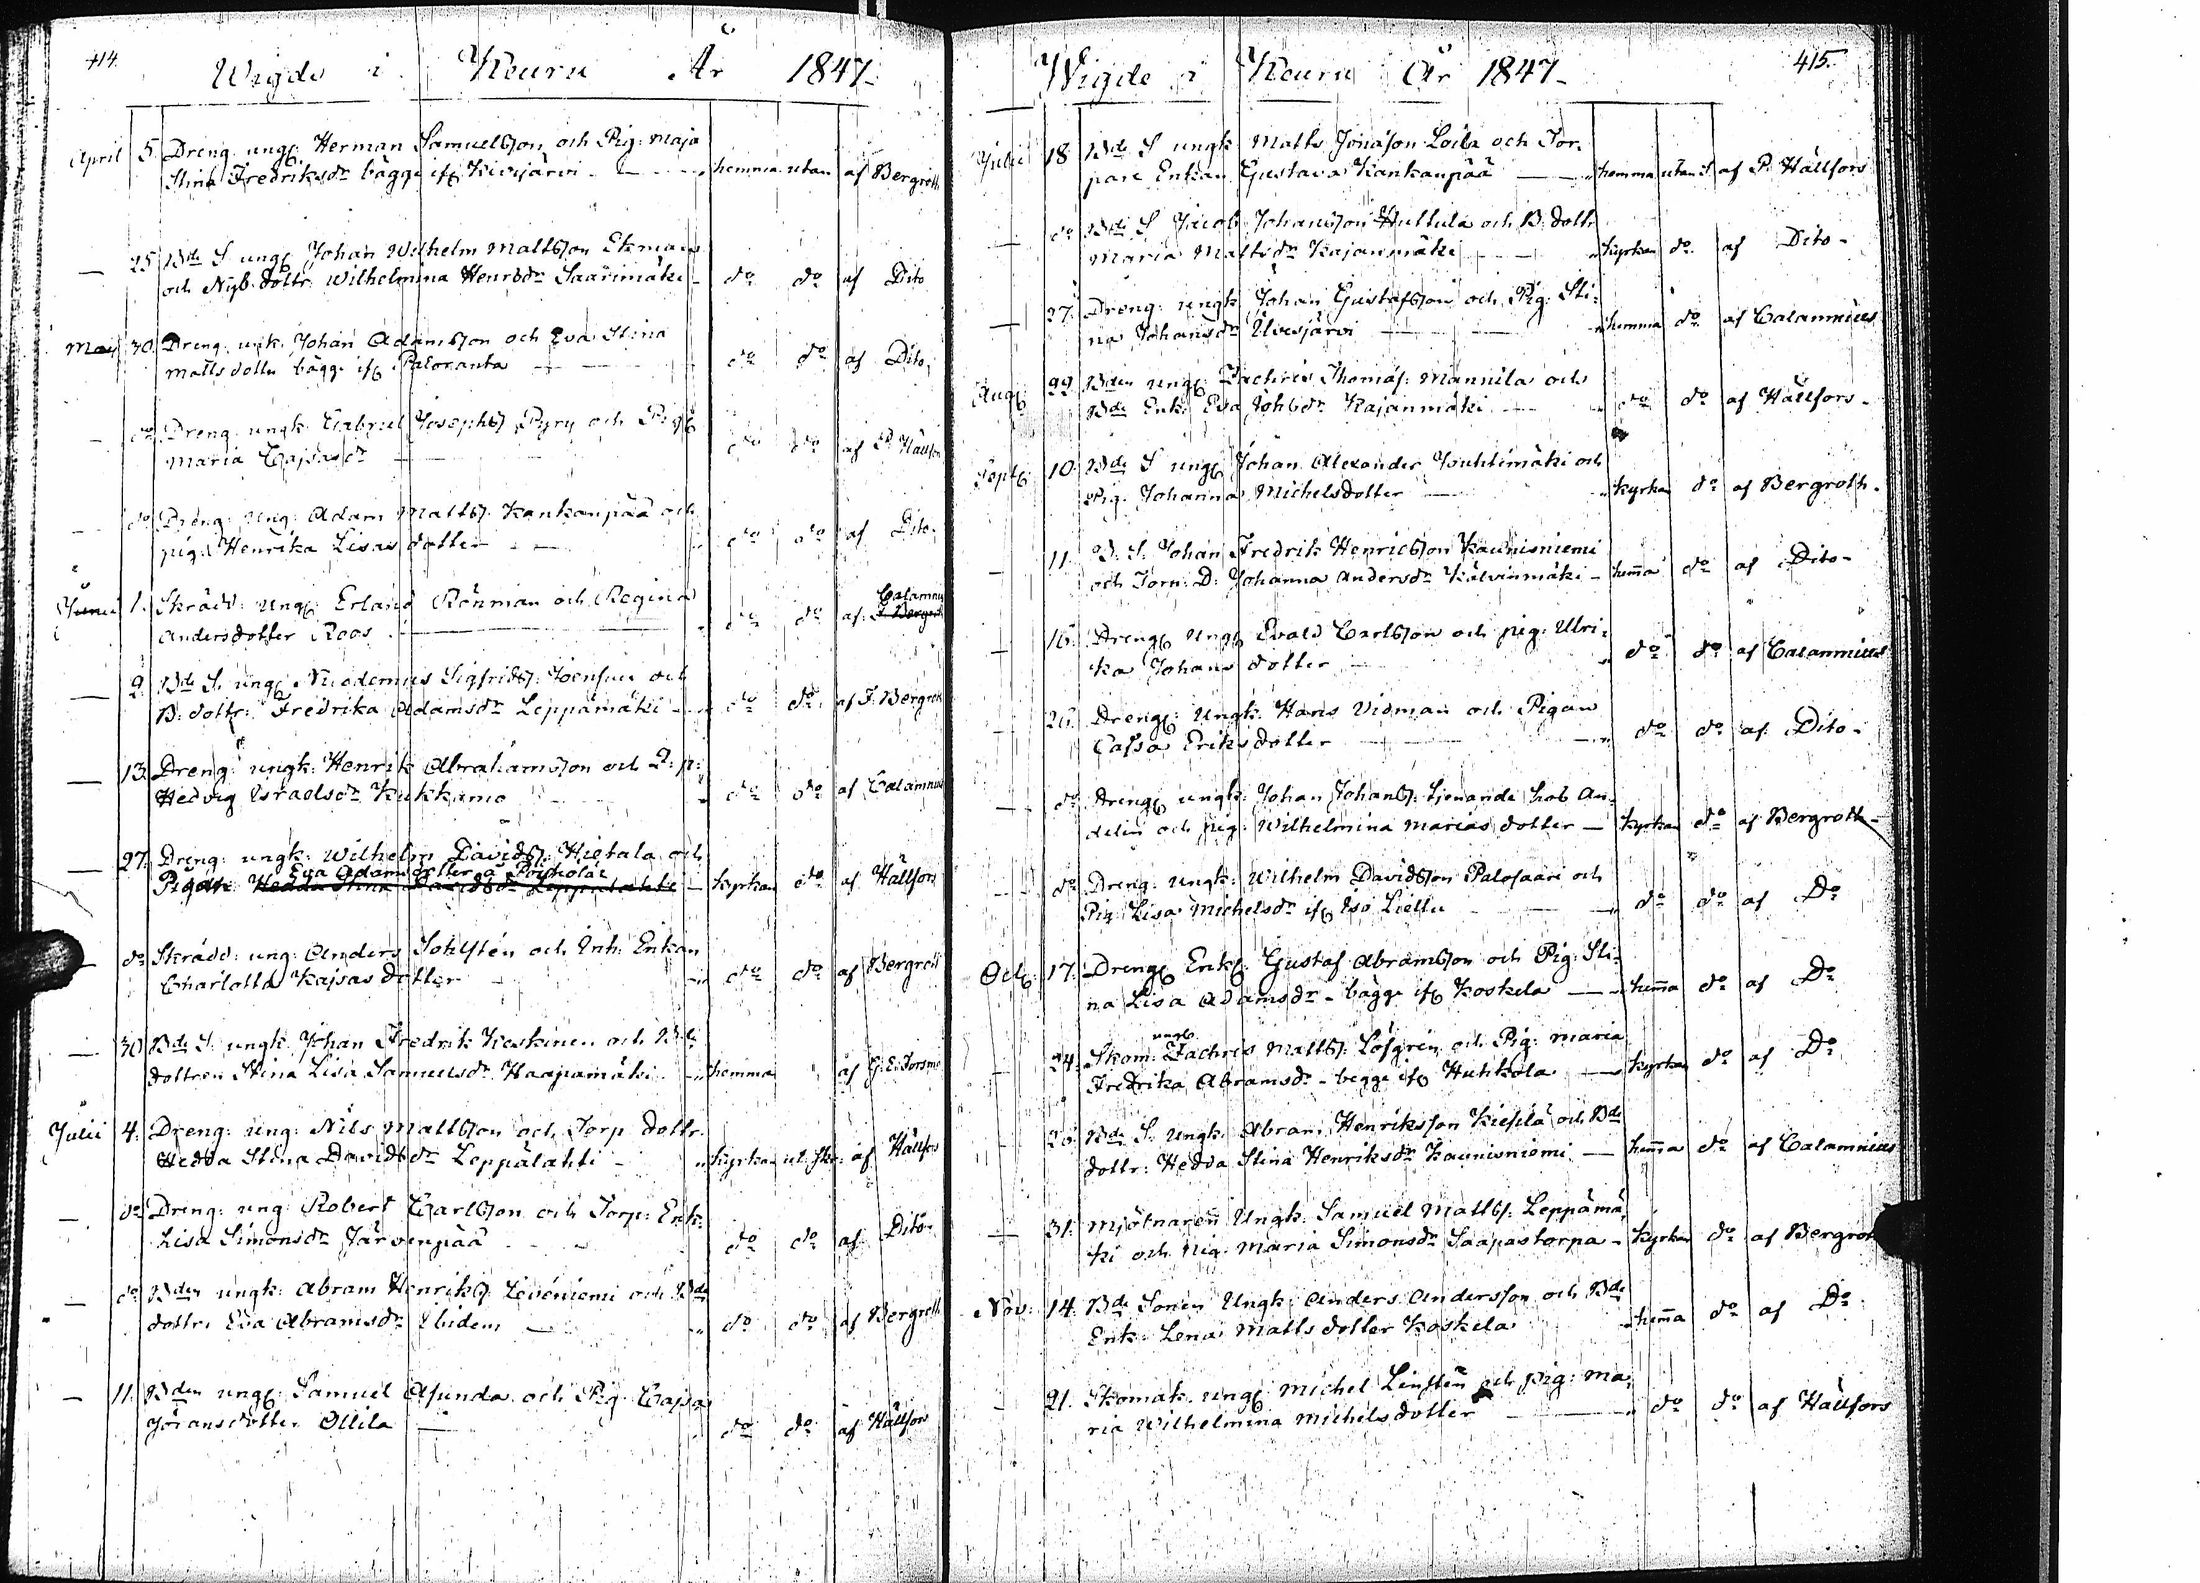 414.
Wigde i Keuru År 1847.
April 5. Dreng. ungk. Herman Samuelsson och Pig: Maja
Stina Fredriksdr bägge ifr. Kivijärvi hemma utan af Bergroth
— 25 Bde S ungk Johan Wilhelm Mattsson Ekman
och Nyb. dottr. Wilhelmina Henrsdr Saarimäki do do af Dito
Maj 30. Dreng. unk. Johan Adamsson och Eva Stina
Matts dotter bägge ifr. Paloranta do do af Dito
— do Dreng. ungk. Gabriel Josephs. Pyry och Pig.
Maria Cajsasdr do do af P. Hällfors
— do Dreng. Ung: Adam Matts. Kankanpää och
pig. Henrika Lisas dotter do do af Dito.
Junii 1. Skrädd. Ungk. Erland Rönman och Regina
Andersdotter Roos do do af Calamnius F. Bergroth
— 2. Bde S. ungk. Nicodemus Sigfrids. Joensuu och
B. dottr: Fredrika Adamsdr Leppämäki do do af F. Bergroth
— 13. Dreng. ungk. Henrik Abrahamsson och
Hedvig Israelsdr Kukkamo do do af Calamnius
27. Dreng: ungk. Wilhelm Davids. Hietala och
Eva Adamsdotter å
Pigan Hedda Stina Davidsdr Leppälahti kyrkan do af Hällfors
do Skrädd. ung. Anders Sohlstén och Inh. Enkan
Charlotta Kajsas dotter do do af Bergroth
— 30 Bde S. ungk. Johan Fredrik Keskinen och Bde
dottren Stina Lisa Samuelsdr Haapamäki hemma " af G. E. Forsman
Julii 4. Dreng. ung. Nils Mattsson och Torp dottr.
Hedda Stina Davidsdr Leppälahti kyrkan ut. skr. af Hällfors
— do Dreng. ung. Robert Carlsson och Torp. Enk.
Lisa Simonsdr Järvenpää do do af Dito.
— do Bden ungk: Abram Henriks. Liveniemi och Bde
dottr. Eva Abramsdr Ibidem do do af Bergroth
— 11. Bden ungk. Samuel Asunda och Pig. Cajsa
Göransdotter Ollila do do af Hällfors
415.
Wigde i Keuru År 1847.
Julii 18 Bde S ungk Matts Jonasson Loila och Tor-
pare Enkan Gustava Kankanpää hemma utan af P. Hällfors
— do Bde S Jacob Johansson Huttula och B. dottr
Maria Mattsdr Kajanmäki kyrkan do af Dito
— 27. Dreng. ungk Johan Gustafsson och Pig. Sti-
na Johansdr Ulvesjärvi hemma do af Calamnius
Aug. 22. Bden ungk. Zachris Thomas. Mannila och
Bde Enk. Eva Johsdr Kajanmäki do do af Hällfors.
Sept. 10. Bde S ungk Johan Alexander och
Pig. Johanna Michelsdotter kyrkan do af Bergroth.
— 11. B. S. Johan Fredrik Henricsson Kaunisniemi
och Torp. D: Johanna Andersdr Kälvinmäki hem̄a do af Dito
— 16. Dreng Ungk Evald Carlsson och pig. Ulri-
ka Johans dotter do do af Calamnius
— 26. Dreng. Ungk. Hans Vidman och Pigan
Cajsa Eriksdotter do do af Dito
— do Dreng ungk. Johan Johans. tjenande hos An-
delin och pig. Wilhelmina Marias dotter kyrkan do af Bergroth
— do Dreng. Ungk. Wilhelm Davidsson Palosaari och
Pig. Lisa Michelsdr ifr Iso Liettu do do af Do
Oct. 17. Dreng Enkl. Gustaf Abramsson och Pig: Sti-
na Lisa Adamsdr bägge ifr Koskela hem̄a do af Do
ungk
— 24. Skom. Zachris Matts. Löfgren och Pig: Maria
Fredrika Abramsdr begge ifr Huhkola kyrkan do af Do
— 26. Bde S. Ungk Abram Henriksson Kiesilä och Bde
dottr: Hedda Stina Henriksdr Kaunisniemi hem̄a do af Calamnius
— 31. Mjölnaren Ungk. Samuel Matts. Leppämä-
ki och pig. Maria Simonsdr Saapastorpa kyrkan do af Bergroth
Nov. 14. Bde Sonen Ungk. Anders Andersson och Bde
Enk. Lena Matts dotter Koskela hem̄a do af Do
— 21. Skomak. ungk. Michel Linstén och pig: Ma-
ria Wilhelmina Michelsdotter do do af Hällfors